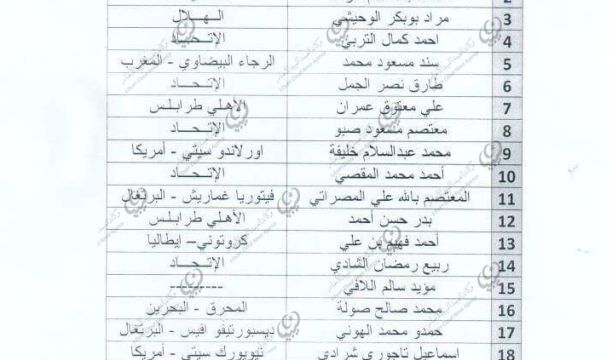 2
3 مراد بوبكر الوحيشي الهـــلال
4 احمد كمال التربي الإتـحـــاد
5 سند مسعود محمد الرجاء البيضاوي - المغرب
6 طارق نصر الجمل الإتـحـــاد
7 علي معتوق عمران الأهلي طرابلس
8 معتصم مسعود صبو الإتـحـــاد
9 محمد عبدالسلام خليفة اورلاندو سيتي - أمريكا
10 أحمد محمد المقصي الإتـحـــاد
11 المعتصم بالله علي المصراتي فيتوريا غماريش - البرتغال
12 بدر حسن أحمد الأهلي طرابلس
13 أحمد فهيم بن علي كروتوني– إيطاليا
14 ربيع رمضان الشادي الإتـحـــاد
15 مؤيد سالم اللافي ---------
16 محمد صالح صولة المحرق - البحرين
17 حمدو محمد الهوني ديسبورتيفو افيس - البرتغال
18 اسماعيل تاجوري شرادي نيويورك سيتي - أمريكا